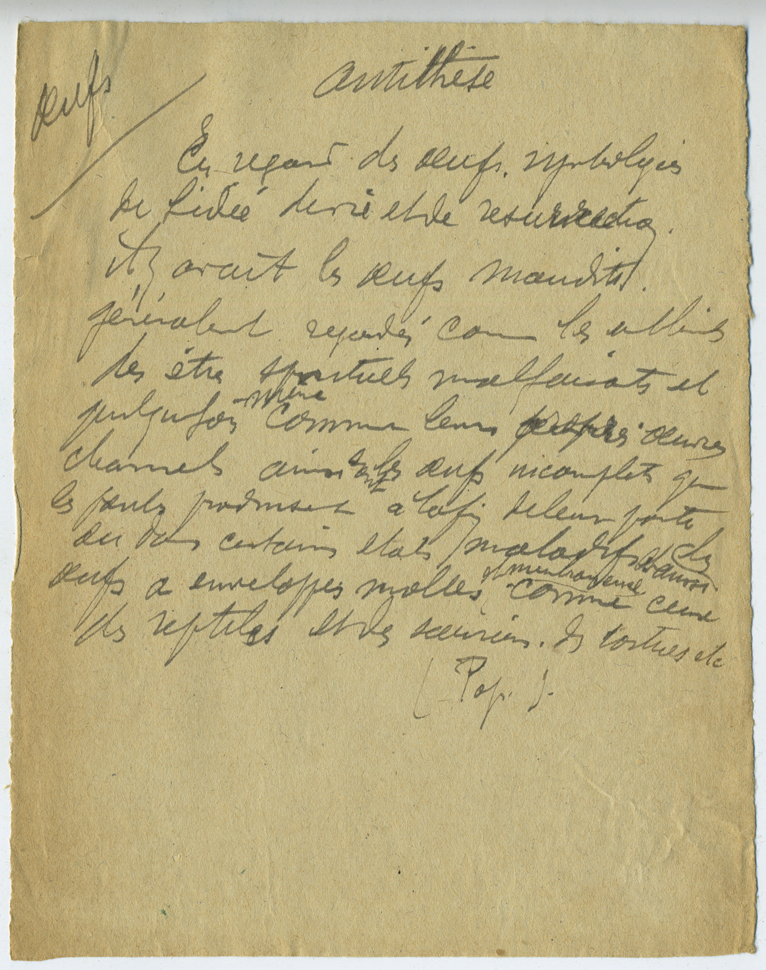 œufs
Antithèse
En regard des œufs symboliques
de l'idée de vie et de resurrection
il y avait les œufs maudits
généralement regardés comme les
des être spirituels malfaisants et
même
comme leurs propres œuvres
charnels ainsi les œufs incomplets que
les poules produisent à la fin de leur ponte
ou dans certains etats maladifs des
œufs a enveloppes molles et membraneuse comme ceux
des reptiles et des sauriens. des tortues etc
( Pop. ).